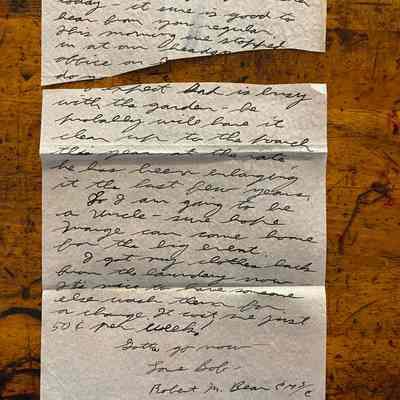 today - it sure is good to
hear from you regular.
This morning we stopped
in at our headqu
office on
do
I expect Dad is busy
with the garden - he
probably will have it
clear up to the porch
this year at the rate
he has been enlarging
it the last few years.
So I am going to be
a Uncle - sure hope
Marge can come home
for the big event.
I got my clothes back
from the laundry now
Its nice to have someone
else wash them for
a change. It cost me just
50¢ per week!
Gotta go now
Love Bob -
Robert M. Bear